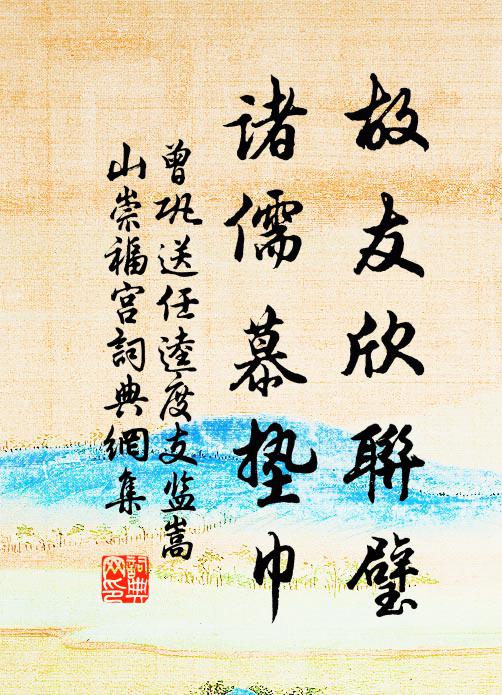 故友欣聯璧
諸儒慕墊巾
曾巩送任逵度支监嵩
山崇福宫詞典網集
詞典
网印